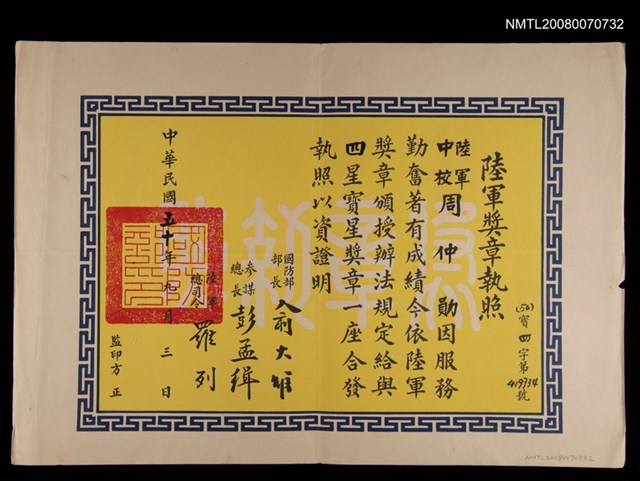 NMTL20080070732
陸軍獎章執照
(50)寶四字第419934號
陸軍中校周仲勛因服務
勤奮著有成績今依陸軍
獎章頒授辦法規定給與
四星寶星獎章一座合發
執照以資證明
國防部部長俞大維
參謀總長彭孟緝
陸軍總司令羅列
中華民國五十年九月三日
監印方正
NMTL20080070732